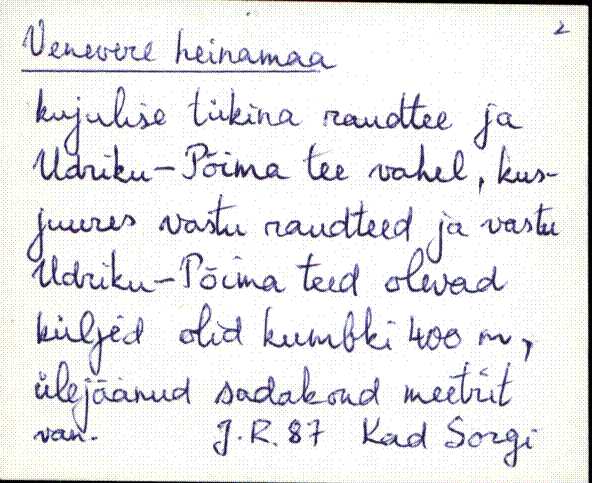 2
Venevere heinamaa
kujulise tükina raudtee ja
Udriku-Põima tee vahel, kus-
juures vastu raudteed ja vastu
Udriku-Põima teed olevad
küljed olid kumbki 400 m,
ülejäänud sadakond meetrit
van. J.R. 87 Kad Sorgi